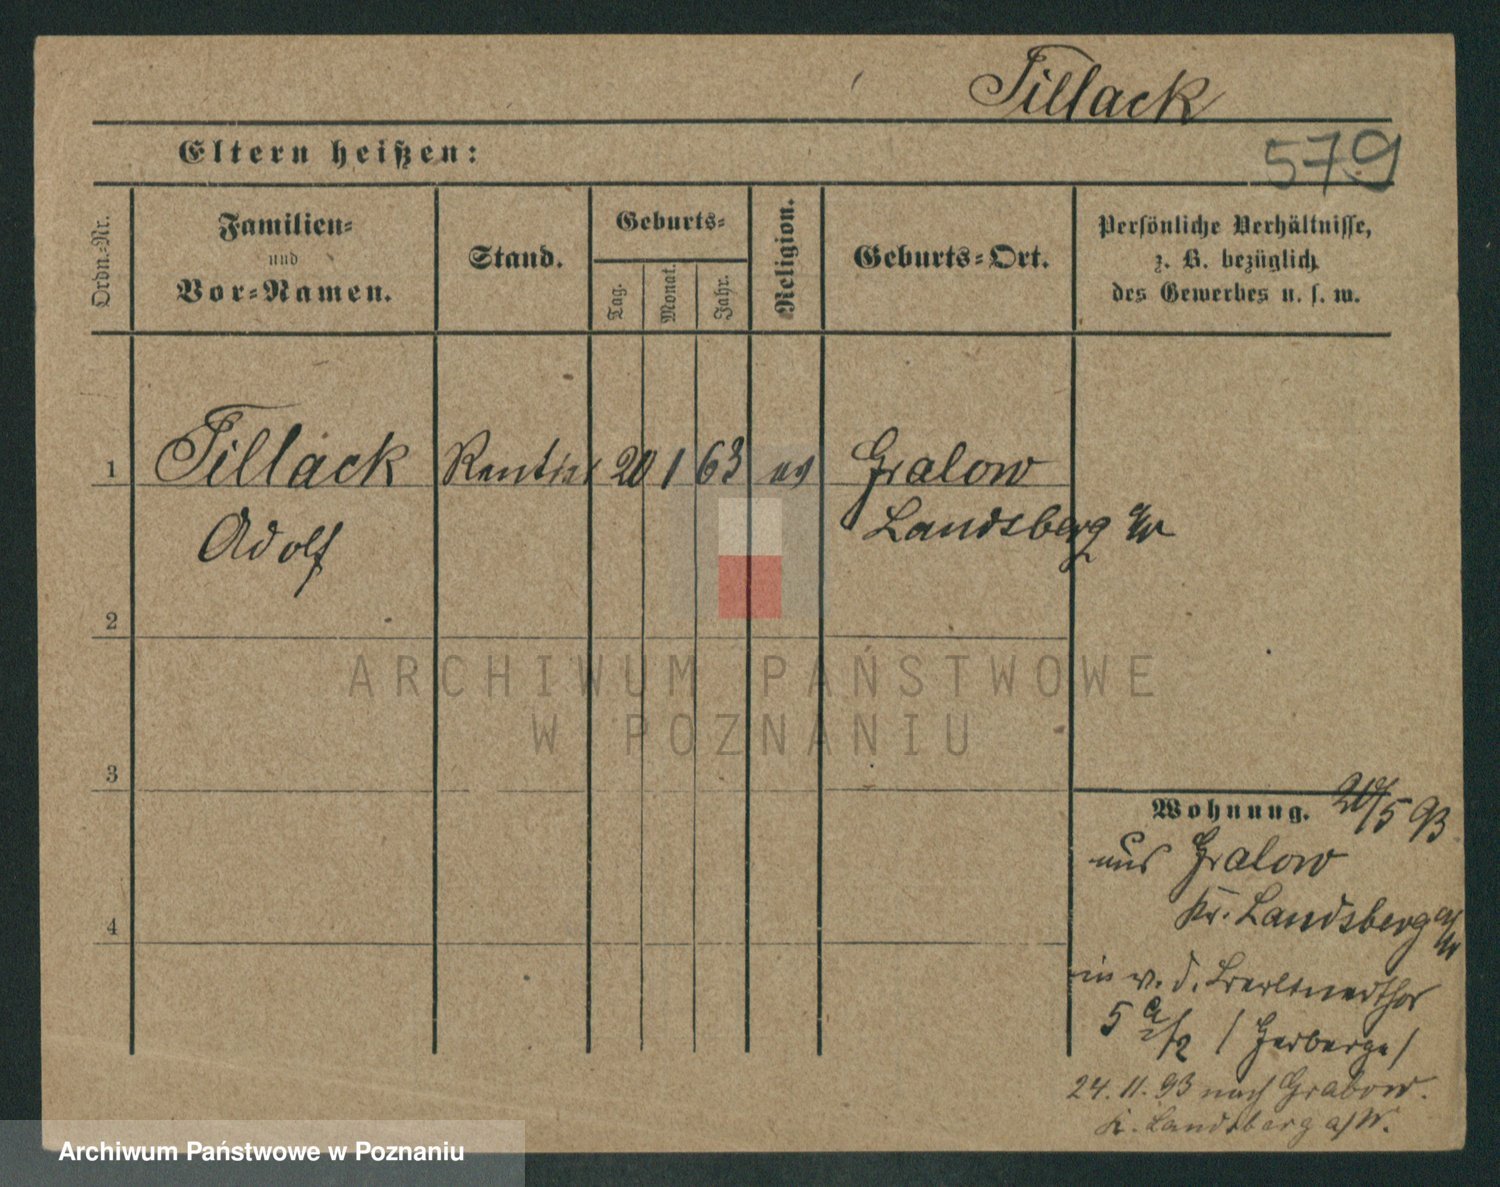 Tillack
579
Eltern heißen:
Ordn.-Nr.
Familien-
und
Vor-Namen.
Stand.
Geburts-
Tag.
Monat.
Jahr.
Religion.
Geburts-Ort.
Persönliche Verhältnisse,
z. B. bezüglich
des Gewerbes u. s. w.
1 Tillack Rentier 20 1 63 ev Gralow
Adolf Landsberg a/W
2
3
4
Wohnung. 20/5 93
aus Gralow
Kr. Landsberg a/W
in v. d. Berlinerthor
5 / Herberge /
24. 11. 93 nach Grabow.
Kr. Landsberg a/W.
ARCHIWUM PAŃSTWOWE
W POZNANIU
Archiwum Państwowe w Poznaniu